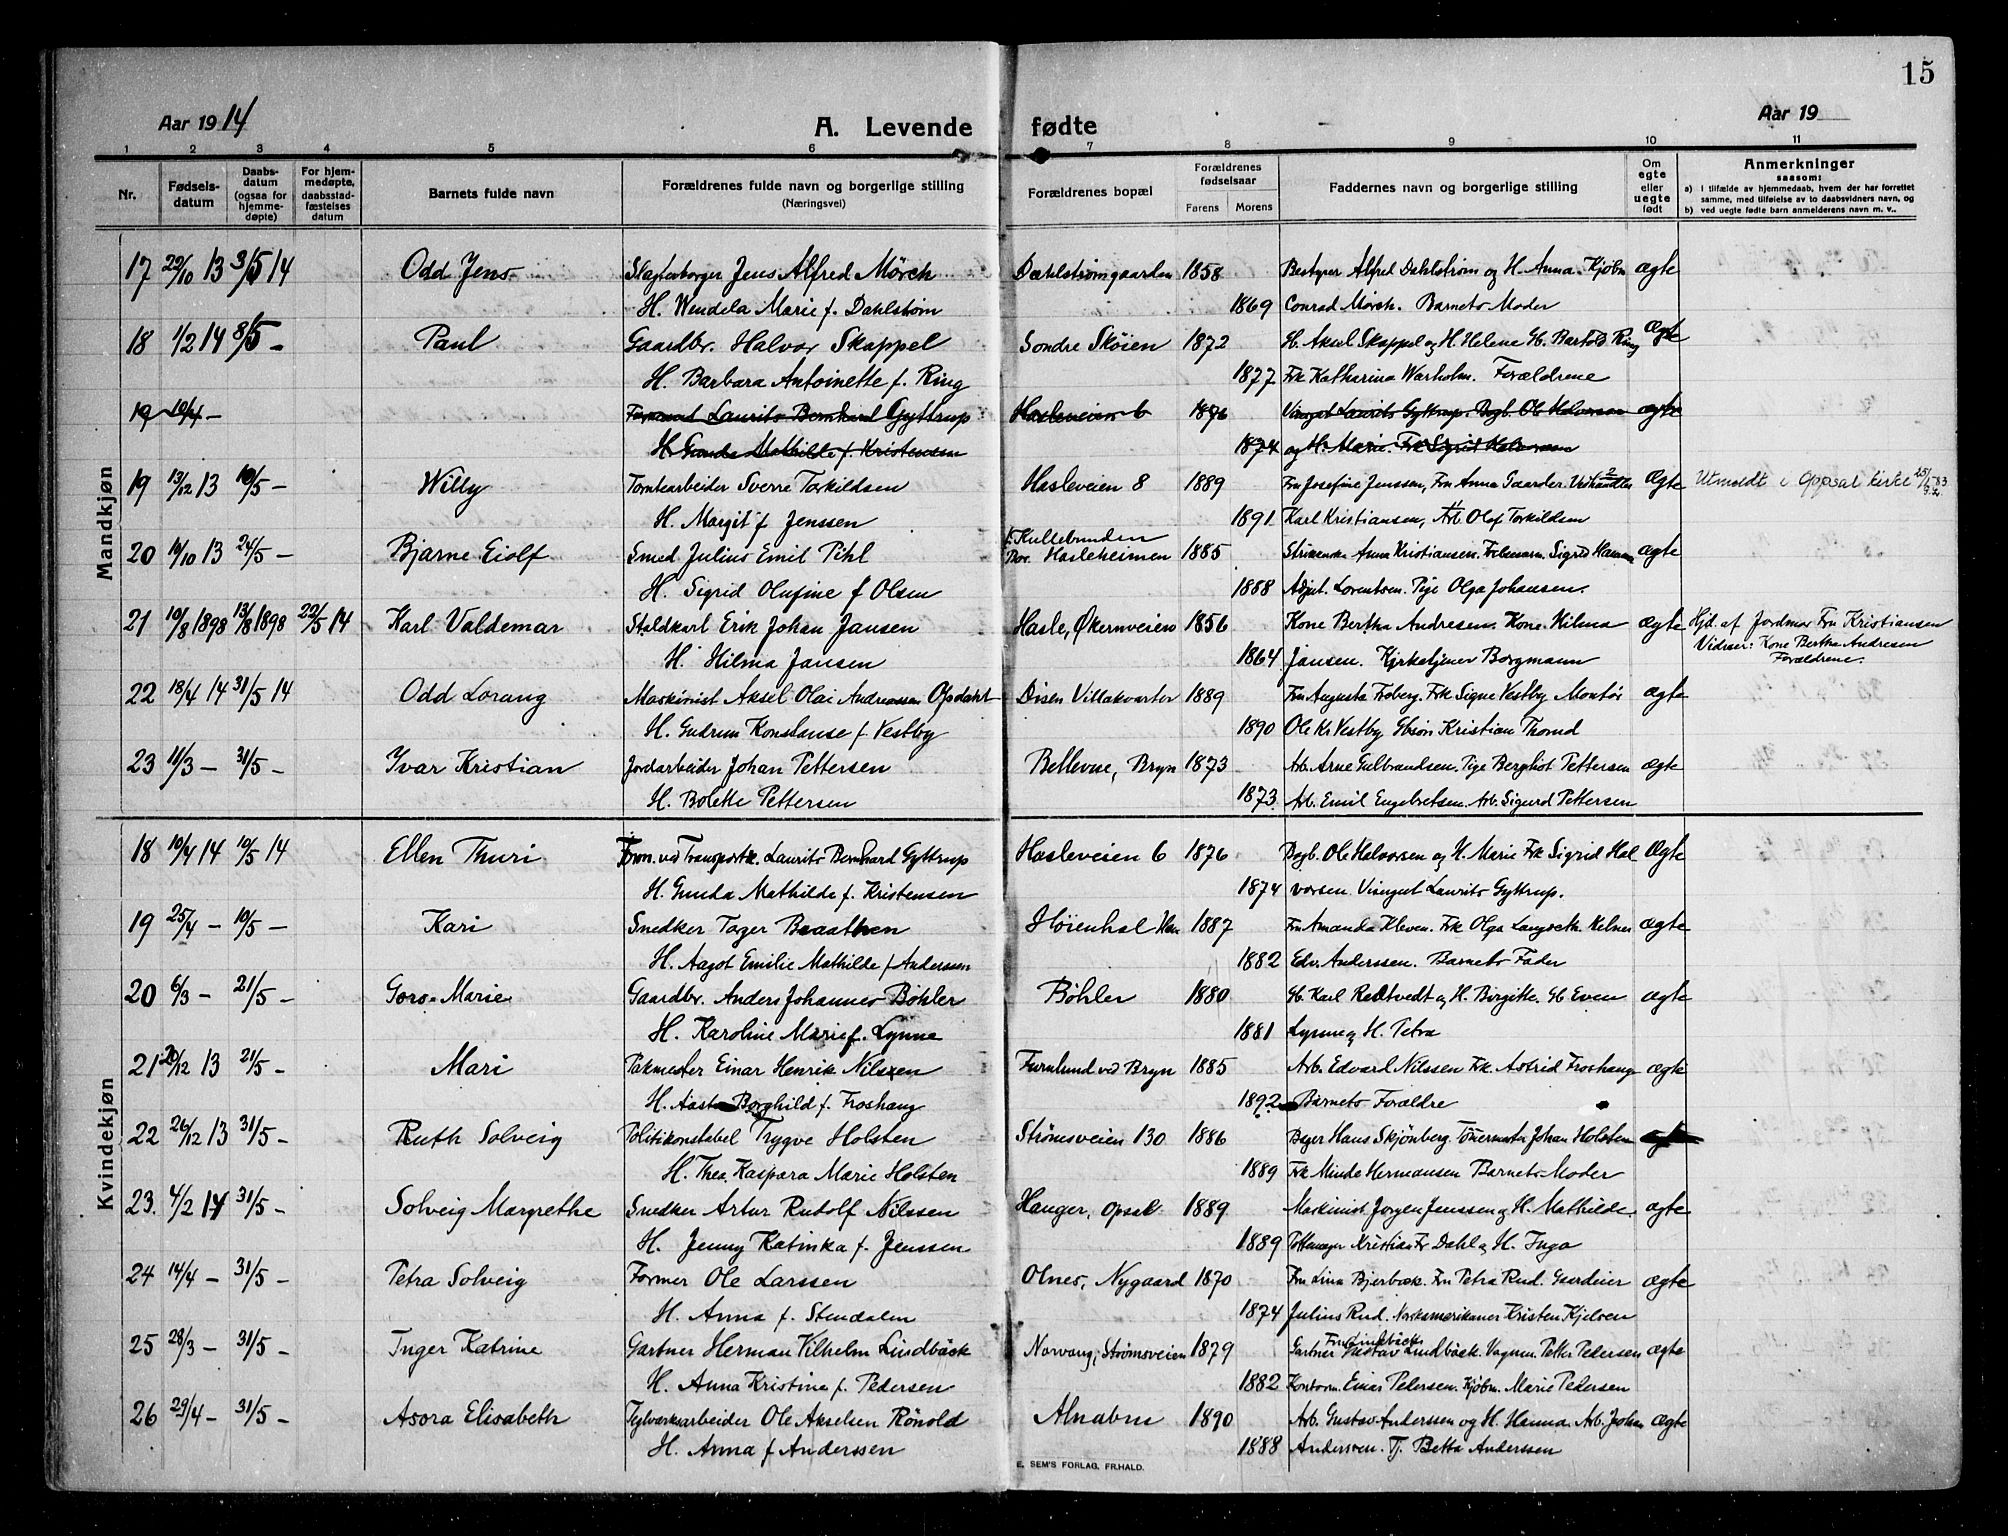 15
Aar 1914 A. Levende fødte Aar 19
1 2 3 4 5 6 7 8 9 10 11
Nr. Fødsels-datum Daabs-datum (ogsaa for hjemme-døpte) For hjem-medøpte, daabsstad-fæstelses datum Barnets fulde navn Forældrenes fulde navn og borgerlige stilling (Næringsvei) Forældrenes bopæl Forældrenes fødselsaar Farens Morens Faddernes navn og borgerlige stilling Om egte eller uegte født Anmerkninger saasom:
a) i tilfælde av hjemmedaab, hvem der har forrettet samme, med tilføielse av to daabsvidners navn, og
b) ved uegte fødte barn anmelderens navn m. v..
Mandkjøn
17 22/10 13 3/5 14 Odd Jens Jens Alfred Mörch Dahlstrømgaarden 1858 Bestyrer Alfred Dahlstrøm og H. Anna. Kjøbm ægte
H. Wendela Marie f. Dahlstrøm 1869 Conrad Mørch. Barnets Moder
18 1/2 14 8/5 – Paul Gaardbr. Halvor Skappel Søndre Skøien 1872 Gb. Aksel Skappel og H Helene Gb. Bartold Ring Ægte
H. Barbara Antoinette f. Ring 1877 Frk Katharina Warholm. Forældrene
19 10/4 – Laurits Bernhard Gyttrup Hasleveien 6 1876 Visergut Laurits Gyttrup. Dogb. Ole Halvorsen ægte
H Gunda Mathilde f. Kristensen 1874 og H. Marie. Frk Sigrid Halvorsen
19 13/12 13 10/5 – Willy Tomtearbeider Sverre Torkildsen Hasleveien 8 1889 Fru Josefine Jenssen, Fru Anna Gaarder. Vedhandler Ægte Utmeldt i Oppsal kirke
H. Margit f Jenssen 1891 Karl Kristiansen, Arb. Olaf Torkildsen
20 19/10 13 24/5 – Bjarne Eiolf Smed Julius Emil Pihl Kullebunden Hasleheimen 1885 Anna Kristiansen. Sigrid ægte
H. Sigrid Olufine f Olsen 1888 Adjut. Lorentsen. Pige Olga Johansen.
21 10/8 1898 13/8 1898 22/5 14 Karl Valdemar Staldkarl Erik Johan Jansen Hasle, Økernveien 1856 Kone Bertha Andresen. Kone Hilma ægte Hjd. af Jordmor Fru Kristiansen
H. Hilma Jansen 1864 Jansen. Kirketjener Borgmann Vidner: Kone Bertha Andresen
Forældrene.
22 18/4 14 31/5 14 Odd Lorang Maskinist Aksel Olai Andreassen Opdahl Disen Villakvarter 1889 Fru Augusta Froberg. Frk Signe Vestby Montør ægte
H. Gudrun Konstanse f Vestby 1890 Ole Kr Vestby Gbsøn Kristian
23 11/3 – 31/5 – Ivar Kristian Jordarbeider Johan Pettersen Bellevue, Bryn 1873 Arb. Arne Gulbrandsen. Pige Bergliot Pettersen ægte
H. Bolette Pettersen 1873. Arb. Emil Engebretsen. Arb. Sigurd Pettersen
Kvindekjøn
18 10/4 14 10/5 14 Ellen Thuri Form. ved Transportk. Laurits Bernhard Gyttrup Hasleveien 6 1876 Dogb. Ole Halvorsen og H. Marie Frk Sigrid Hal Ægte
H. Gunda Mathilde f. Kristensen 1874 vorsen. Visergut Laurits Gyttrup.
19 25/4 – 10/5 – Kari Snedker Tager Braathen Høienhal 1887 Fru Amanda Kleven. Frk Olga Kelner ægte
H. Aagot Emilie Mathilde f Anderssen 1882 Edv. Anderssen. Barnets Fader
20 6/3 – 21/5 – Goro Marie Gaardbr. Anders Johannes Bøhler Bøhler 1880 Gb. Karl Redtvedt og H. Birgitte. Gb Even ægte
H. Karoline Marie f. Lynne 1881 Lynne og H. Petra
21 20/12 13 21/5 – Mari Pakmester Einar Henrik Nilssen Furulund ved Bryn 1885 Arb. Edvard Nilssen Frk. Astrid Froshaug ægte
H. Aasta Borghild f. Froshaug 1892 Barnets Forældre
22 26/12 13 31/5 – Ruth Solveig Politikonstabel Trygve Holsten Strømsveien 130 1886 Hans Skjønberg. Johan Holsten ægte
H. Thea Kaspara Marie Holsten 1889 Frk Minde Hermansen Barnets Moder
23. 4/2 14 31/5 – Solveig Margrethe Snedker Artur Rudolf Nilssen Hauger, Opsal 1889 Maskinist Jørgen Jenssen og H. Mathilde. ægte
H. Jenny Katinka f. Jenssen 1889 Pottemager Kristian Fr Dahl og H. Inga
24 14/4 – 31/5 – Petra Solveig Former Ole Larssen Olnes, Nygaard 1870 Fru Lina Bjerbæk. Fru Petra Rud. Gaardeier ægte
H. Anna f. Stendalen 1874 Julius Rud. Norskamerikaner Kristen Kjelsen
25 28/3 – 31/5 – Inger Katrine Gartner Herman Vilhelm Lindbäck Norvang, Strømsveien 1879 Gartner Gustav Fru Lindbäck Lindbäck. Vognm. Petter Pedersen ægte
H. Anna Kristine f. Pedersen 1882 Kontorm. Einar Petersen. Kjøbm. Marie Pedersen
26 29/4 – 31/5 – Asora Elisabeth Teglverksarbeider Ole Akselsen Rönold Alnabru 1890 Arb. Gustav Anderssen og H. Hanna. Arb. Johan ægte
H. Anna f Anderssen 1888 Andersen. Tj. Betta Anderssen
E. SEM'S FORLAG. FR.HALD.